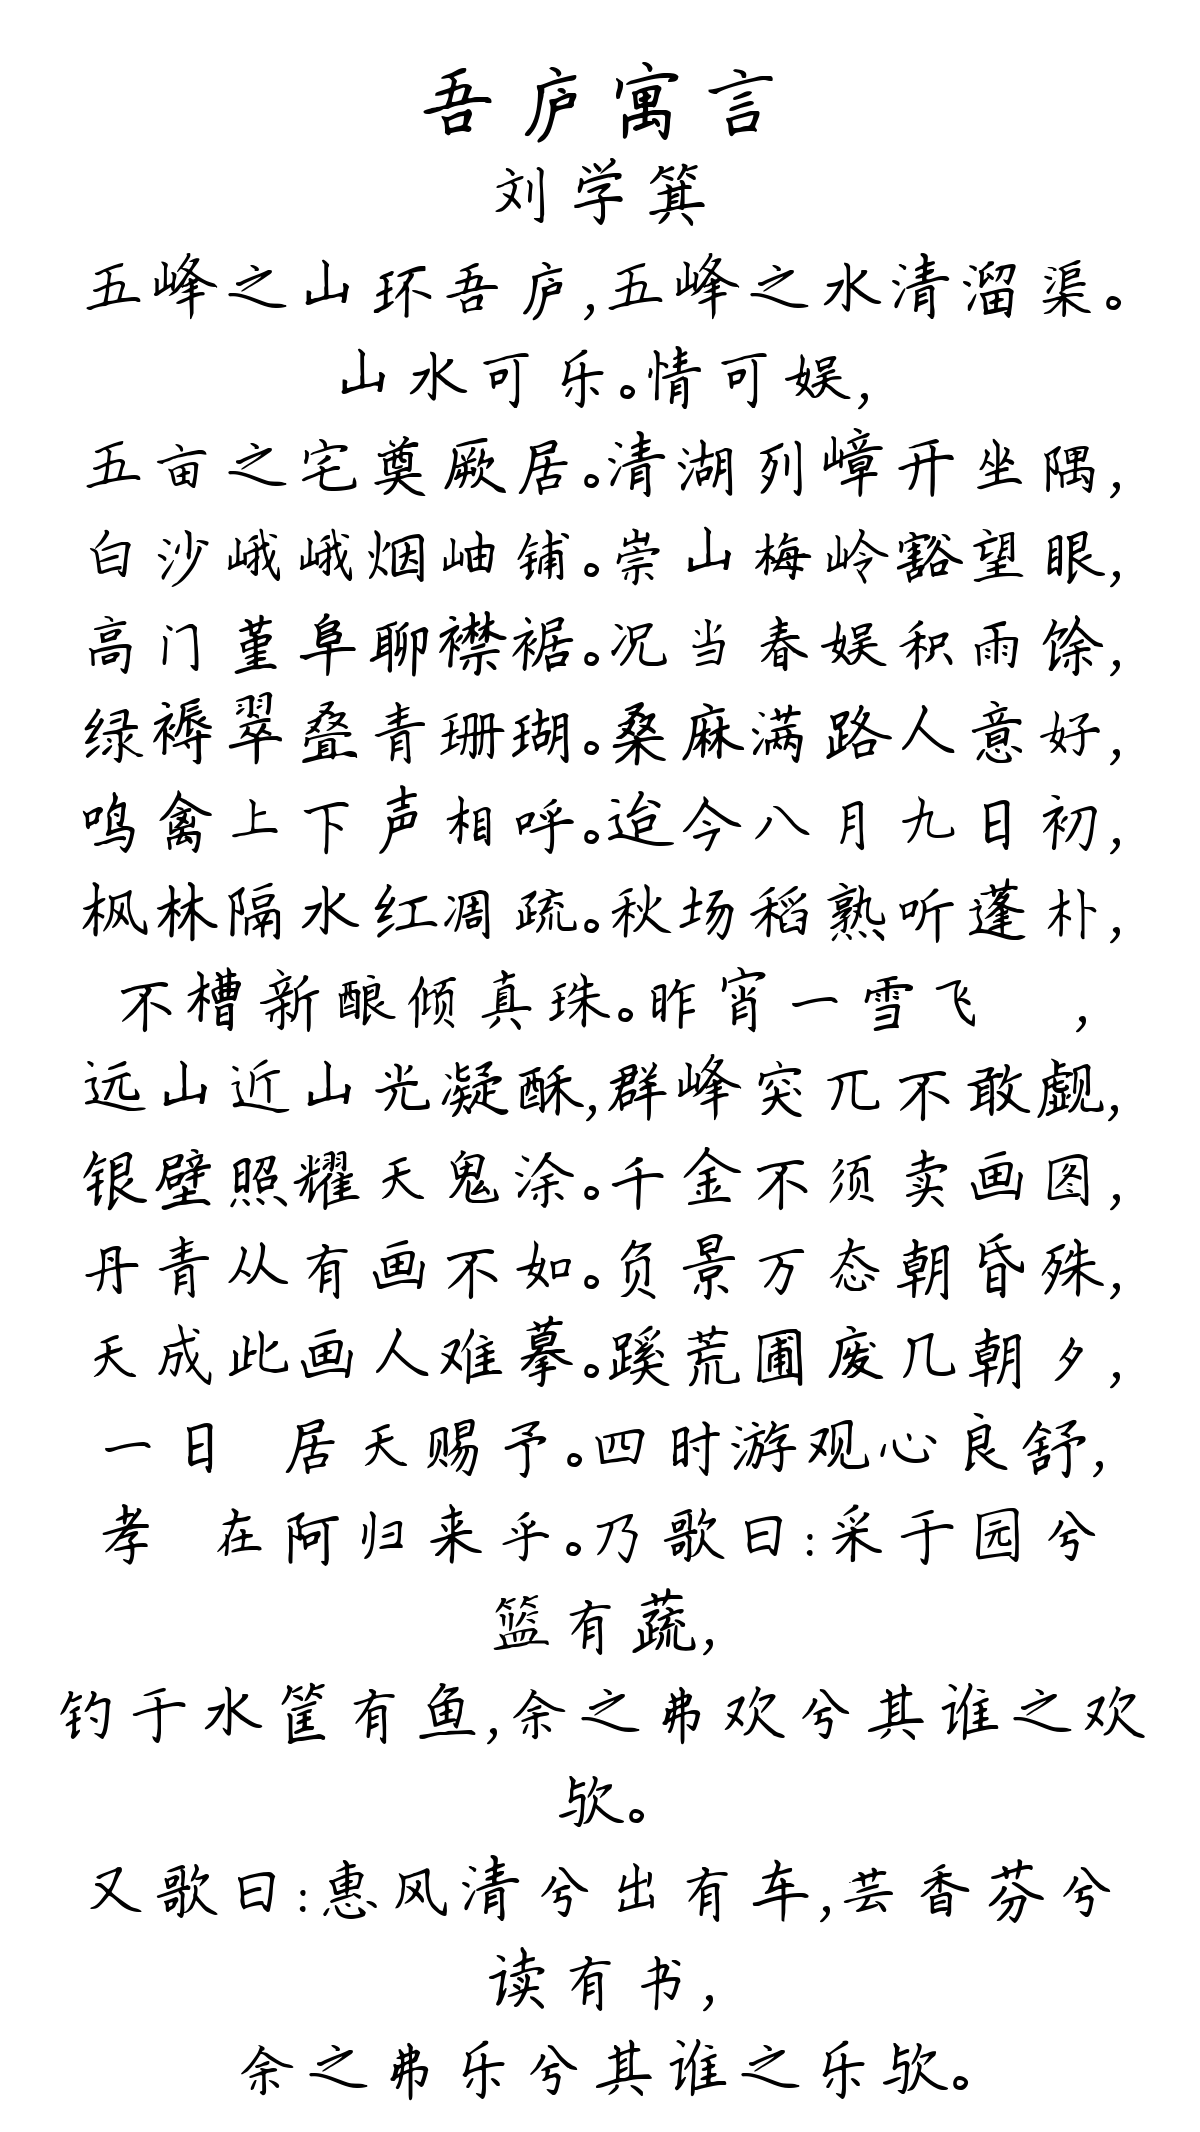 吾庐寓言
刘学箕
五峰之山环吾庐,五峰之水清溜渠。
山水可乐。情可娱,
五亩之宅奠厥居。清湖列嶂开坐隅,
白沙峨峨烟岫铺。崇山梅岭豁望眼,
高门堇阜聊襟裾。况当春娱积雨馀,
绿褥翠叠青珊瑚。桑麻满路人意好,
鸣禽上下声相呼。迨今八月九日初,
枫林隔水红凋疏。秋场稻熟听蓬朴,
不槽新酿倾真珠。昨宵一雪飞 ,
远山近山光凝酥,群峰突兀不敢觑,
银壁照耀天鬼涂。千金不须卖画图,
丹青从有画不如。负景万态朝昏殊,
天成此画人难摹。蹊荒圃废几朝夕,
一日 居天赐予。四时游观心良舒,
孝 在阿归来乎。乃歌曰:采于园兮
篮有蔬,
钓于水筐有鱼,余之弗欢兮其谁之欢
欤。
又歌曰:惠风清兮出有车,芸香芬兮
读有书,
余之弗乐兮其谁之乐欤。